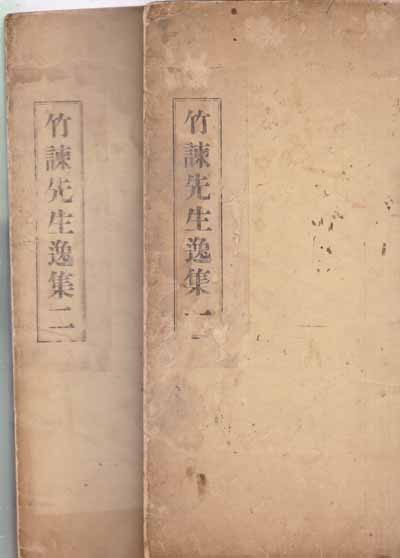 竹諫先生逸集一
竹諫先生逸集二